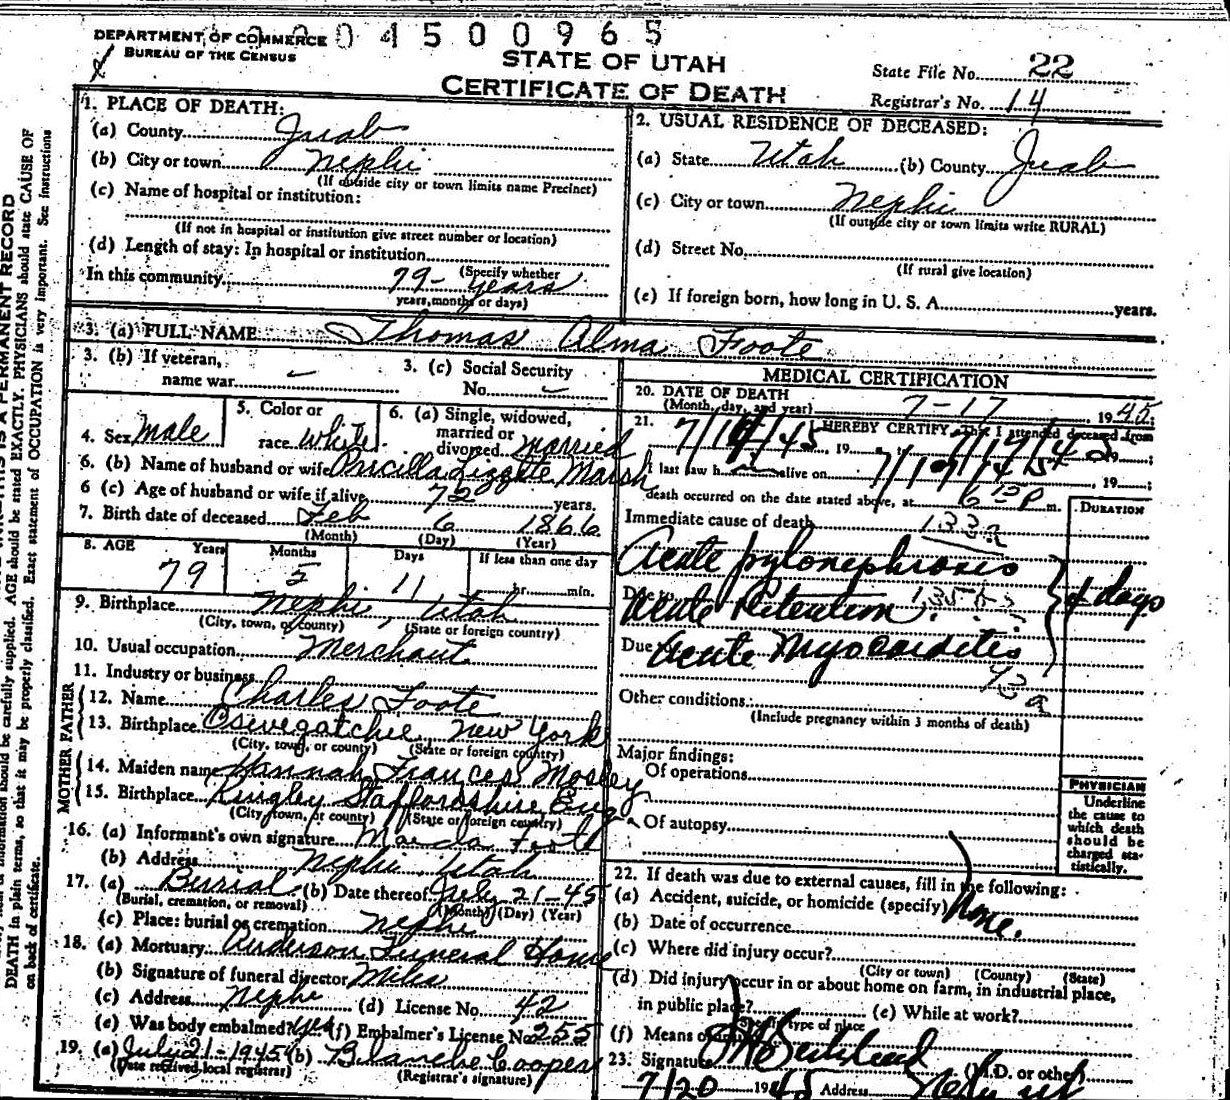 DEPARTMENT OF COMMERCE
BUREAU OF THE CENSUS
04500965
STATE OF UTAH
CERTIFICATE OF DEATH
State File No. 22
Registrar's No. 14
1. PLACE OF DEATH:
(a) County Juab
(b) City or town Nephi
(If outside city or town limits name Precinct)
(c) Name of hospital or institution:
(If not in hospital or institution give street number or location)
(d) Length of stay: In hospital or institution
(Specify whether
In this community 79- years
years, months or days)
2. USUAL RESIDENCE OF DECEASED:
(a) State Utah (b) County Juab
(c) City or town Nephi
(If outside city or town limits write RURAL)
(d) Street No.
(If rural give location)
(e) If foreign born, how long in U. S. A. years.
3. (a) FULL NAME Thomas Alma Foote
3. (b) If veteran, name war -
3. (c) Social Security No. -
4. Sex male
5. Color or race white
6. (a) Single, widowed, married or divorced married
6. (b) Name of husband or wife Priscilla Lizzette Marsh
6 (c) Age of husband or wife if alive 72 years.
7. Birth date of deceased Feb 6 1866
(Month) (Day) (Year)
8. AGE Years Months Days If less than one day
79 5 11 hr. min.
9. Birthplace Nephi, Utah
(City, town, or county) (State or foreign country)
10. Usual occupation Merchant
11. Industry or business
FATHER
12. Name Charles Foote
13. Birthplace Oswegatchie New York
(City, town, or county) (State or foreign country)
MOTHER
14. Maiden name Hannah Frances Mosley
15. Birthplace Kingley Staffordshire Eng
(City, town, or county) (State or foreign country)
16. (a) Informant's own signature Foote
(b) Address Nephi Utah
17. (a) Burial (b) Date thereof July 21-45
(Burial, cremation, or removal) (Month) (Day) (Year)
(c) Place: burial or cremation Nephi
18. (a) Mortuary Anderson Funeral Home
(b) Signature of funeral director Miles
(c) Address Nephi (d) License No. 42
(e) Was body embalmed? yes (f) Embalmer's License No. 255
19. (a) July 21-1945 (b) Blanche Cooper
(Date received local registrar) (Registrar's signature)
MEDICAL CERTIFICATION
20. DATE OF DEATH
(Month, day, and year) 7-17 1945
21. I HEREBY CERTIFY, That I attended deceased from
7/14/45, 19 7/17/45 19 ;
I last saw h alive on 7/17/45, 19 ;
death occurred on the date stated above, at 6 15 P m.
DURATION
Immediate cause of death 133a
Acute pylonephrosis
Due to
Acute Retention
4 days
Due to
Acute Myocarditis
93a
Other conditions:
(Include pregnancy within 3 months of death)
Major findings:
Of operations
Of autopsy
PHYSICIAN
Underline
the cause to
which death
should be
charged sta-
tistically.
22. If death was due to external causes, fill in the following:
(a) Accident, suicide, or homicide (specify) None.
(b) Date of occurrence
(c) Where did injury occur?
(City or town) (County) (State)
(d) Did injury occur in or about home on farm, in industrial place,
in public place? (e) While at work?
(Specify type of place
(f) Means of
23. Signature (M.D. or other)
7/20 1945 Address Nephi Ut
DEATH in plain terms, so that it may be properly classified. Exact statement of OCCUPATION is very important. See instructions
on back of certificate.
information should be carefully supplied. AGE should be stated EXACTLY. PHYSICIANS should state CAUSE OF
THIS IS A PERMANENT RECORD